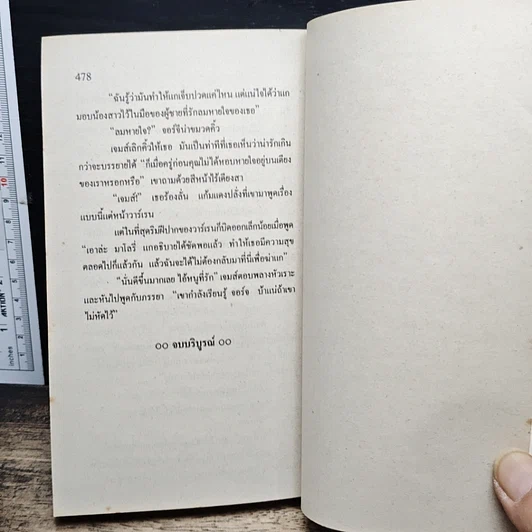 478
"ฉันรู้ว่ามันทำให้แกเจ็บปวดแค่ไหน แต่แน่ใจได้ว่าแก
มอบน้องสาวไว้ในมือของผู้ชายที่รักลมหายใจของเธอ"
"ลมหายใจ?" จอร์จีน่าขมวดคิ้ว
เจมส์เลิกคิ้วให้เธอ มันเป็นท่าทีที่เธอเห็นว่าน่ารักเกิน
กว่าจะบรรยายได้ "ก็เมื่อครู่ก่อนคุณไม่ได้หอบหายใจอยู่บนเตียง
ของเราหรอกหรือ" เขาถามด้วยสีหน้าไร้เดียงสา
"เจมส์!" เธอร้องลั่น แก้มแดงปลั่งที่เขามาพูดเรื่อง
แบบนี้แต่หน้าวาร์เรน
แต่ในที่สุดริมฝีปากของวาร์เรนก็บิดออกเล็กน้อยเมื่อพูด
"เอาล่ะ มาโลรี่ แกอธิบายได้ชัดพอแล้ว ทำให้เธอมีความสุข
ตลอดไปก็แล้วกัน แล้วฉันจะได้ไม่ต้องกลับมาที่นี่เพื่อฆ่าแก"
"นั่นดีขึ้นมากเลย ไอ้หนูที่รัก" เจมส์ตอบพลางหัวเราะ
และหันไปพูดกับภรรยา "เขากำลังเรียนรู้ จอร์จ บ้าแน่ถ้าเขา
ไม่หัดไว้"
○○ จบบริบูรณ์ ○○
10
1
inches